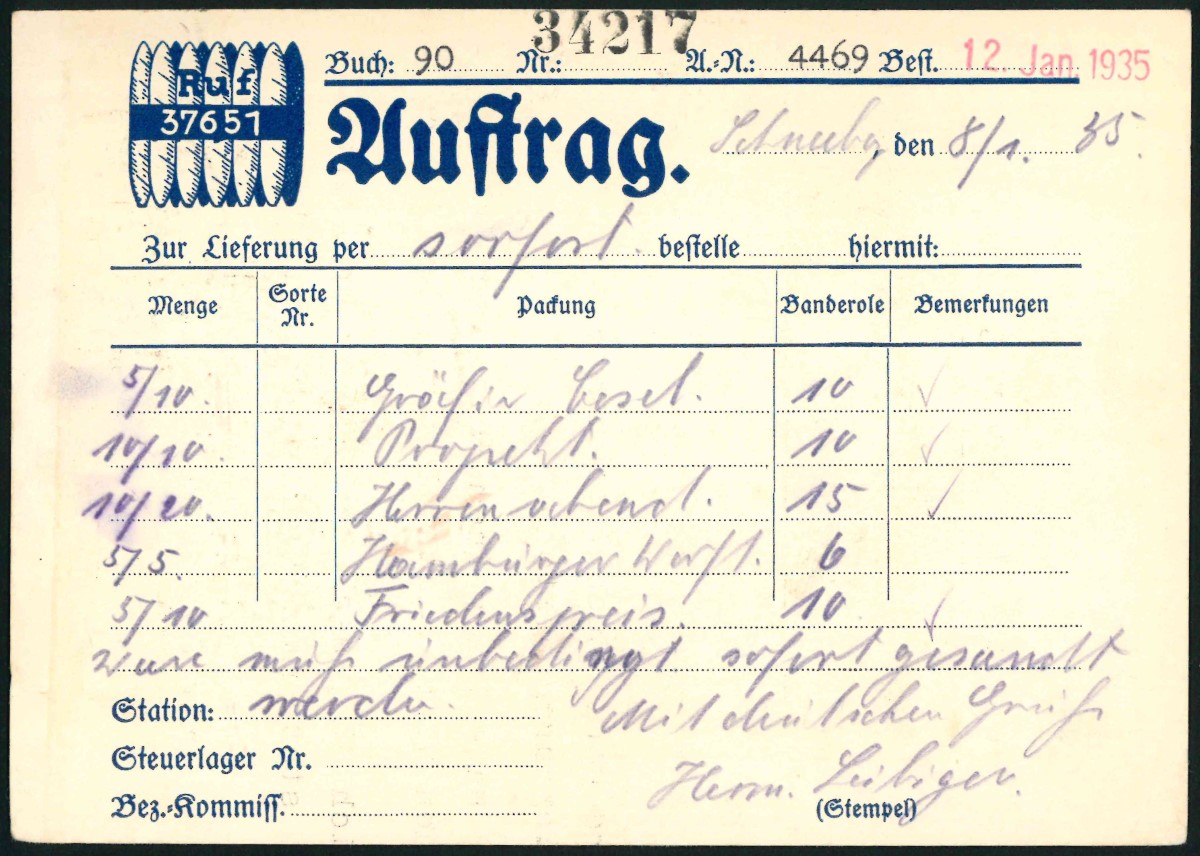 34217
Ruf
37651
Buch: 90 Nr.: A.-N.: 4469 Best. 12. Jan. 1935
Auftrag.
Schneebg, den 8/1. 35.
Zur Lieferung per sorfort. bestelle hiermit:
Menge Sorte Nr. Packung Banderole Bemerkungen
5/10. Gräfin Cosel. 10 ✓
10/10. 10 ✓
10/20. Herrenabend. 15 ✓
5/5. Hamburger Werft. 6
5/10 Friedenspreis. 10 ✓
Ware muß unbedingt sofort gesandt
Station: werden.
Mit deutschen Gruß
Steuerlager Nr.
Herm. Leibiger.
Bez.-Kommiss.
(Stempel)